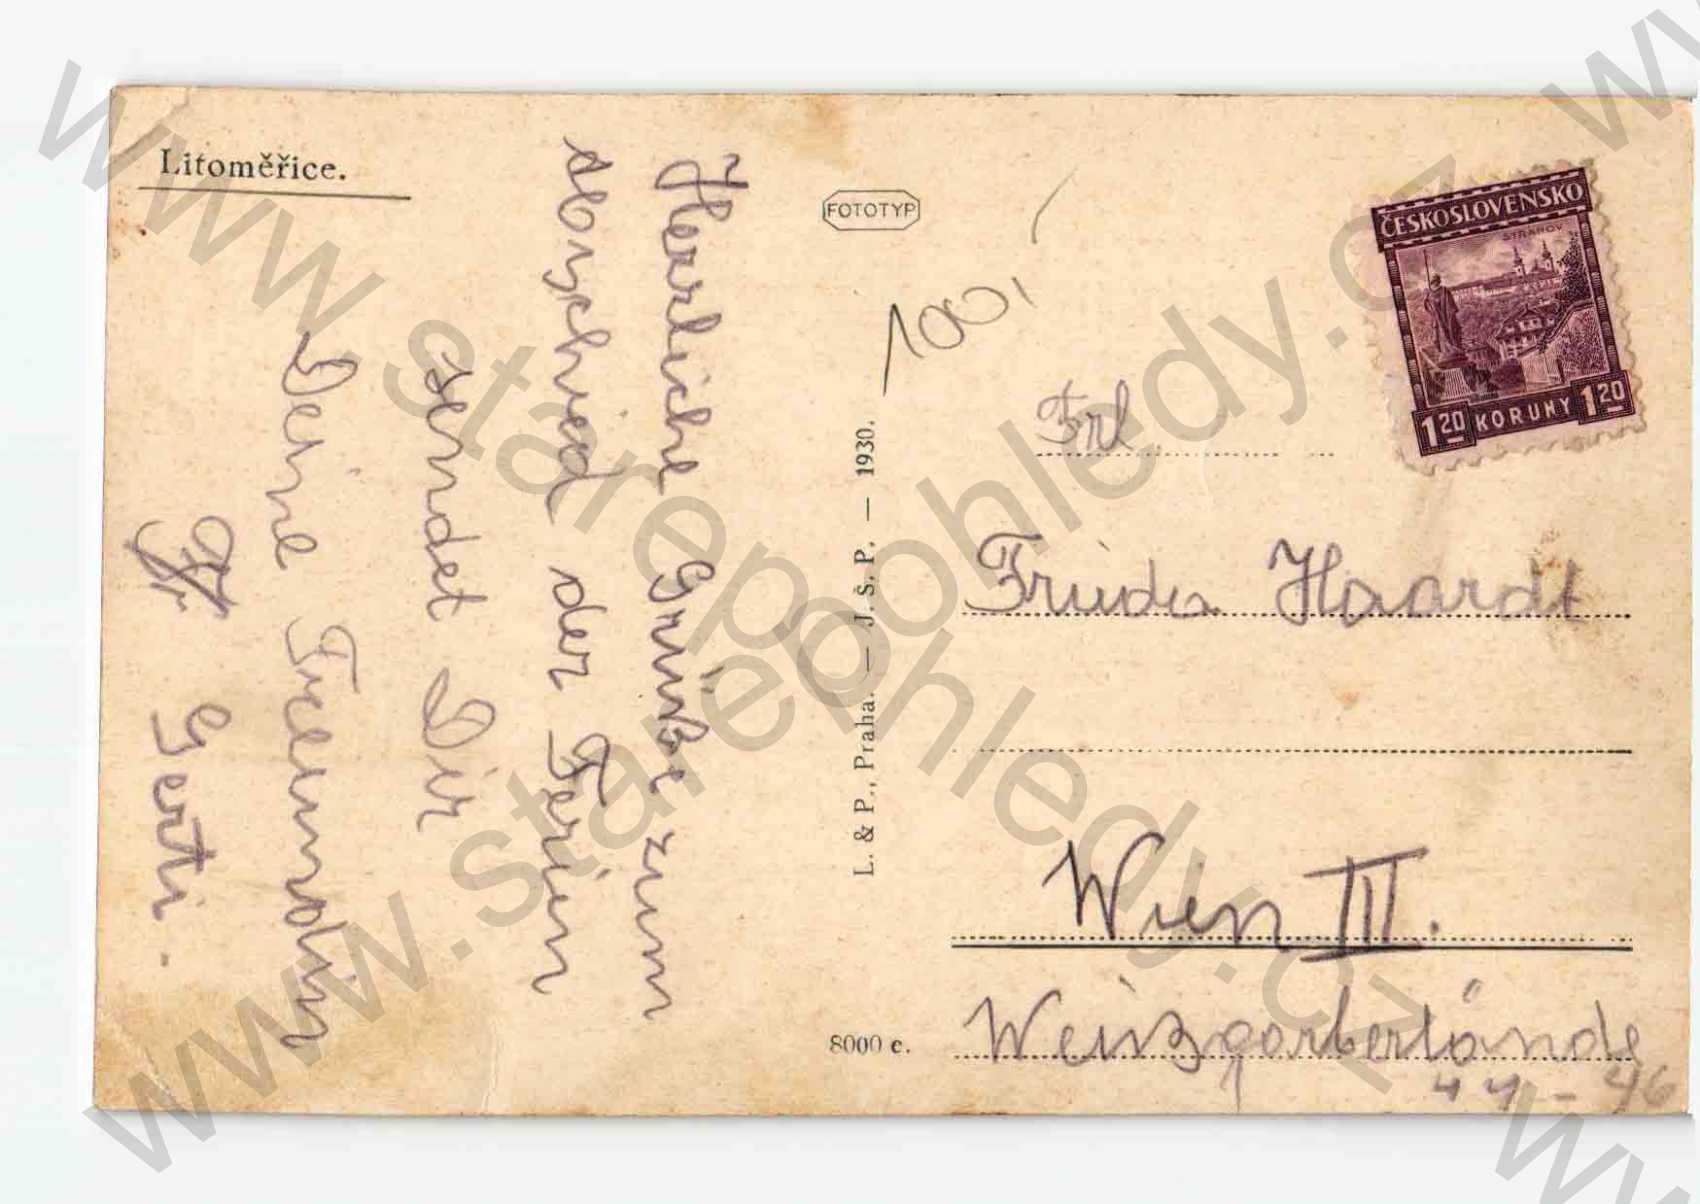 Litoměřice.
Herzliche Grüße zum
Abschied der Ferien
sendet Dir
Deine Freundin
Gerti.
FOTOTYP
100,
L. & P., Praha. — J. Š. P. — 1930.
8000 c.
ČESKOSLOVENSKO
STRAHOV
1·20 KORUNY 1·20
Frl.
Frieda Haardt
Wien III.
Weißgärberlände
44-46
www.starepohledy.cz
www.starepohledy.cz